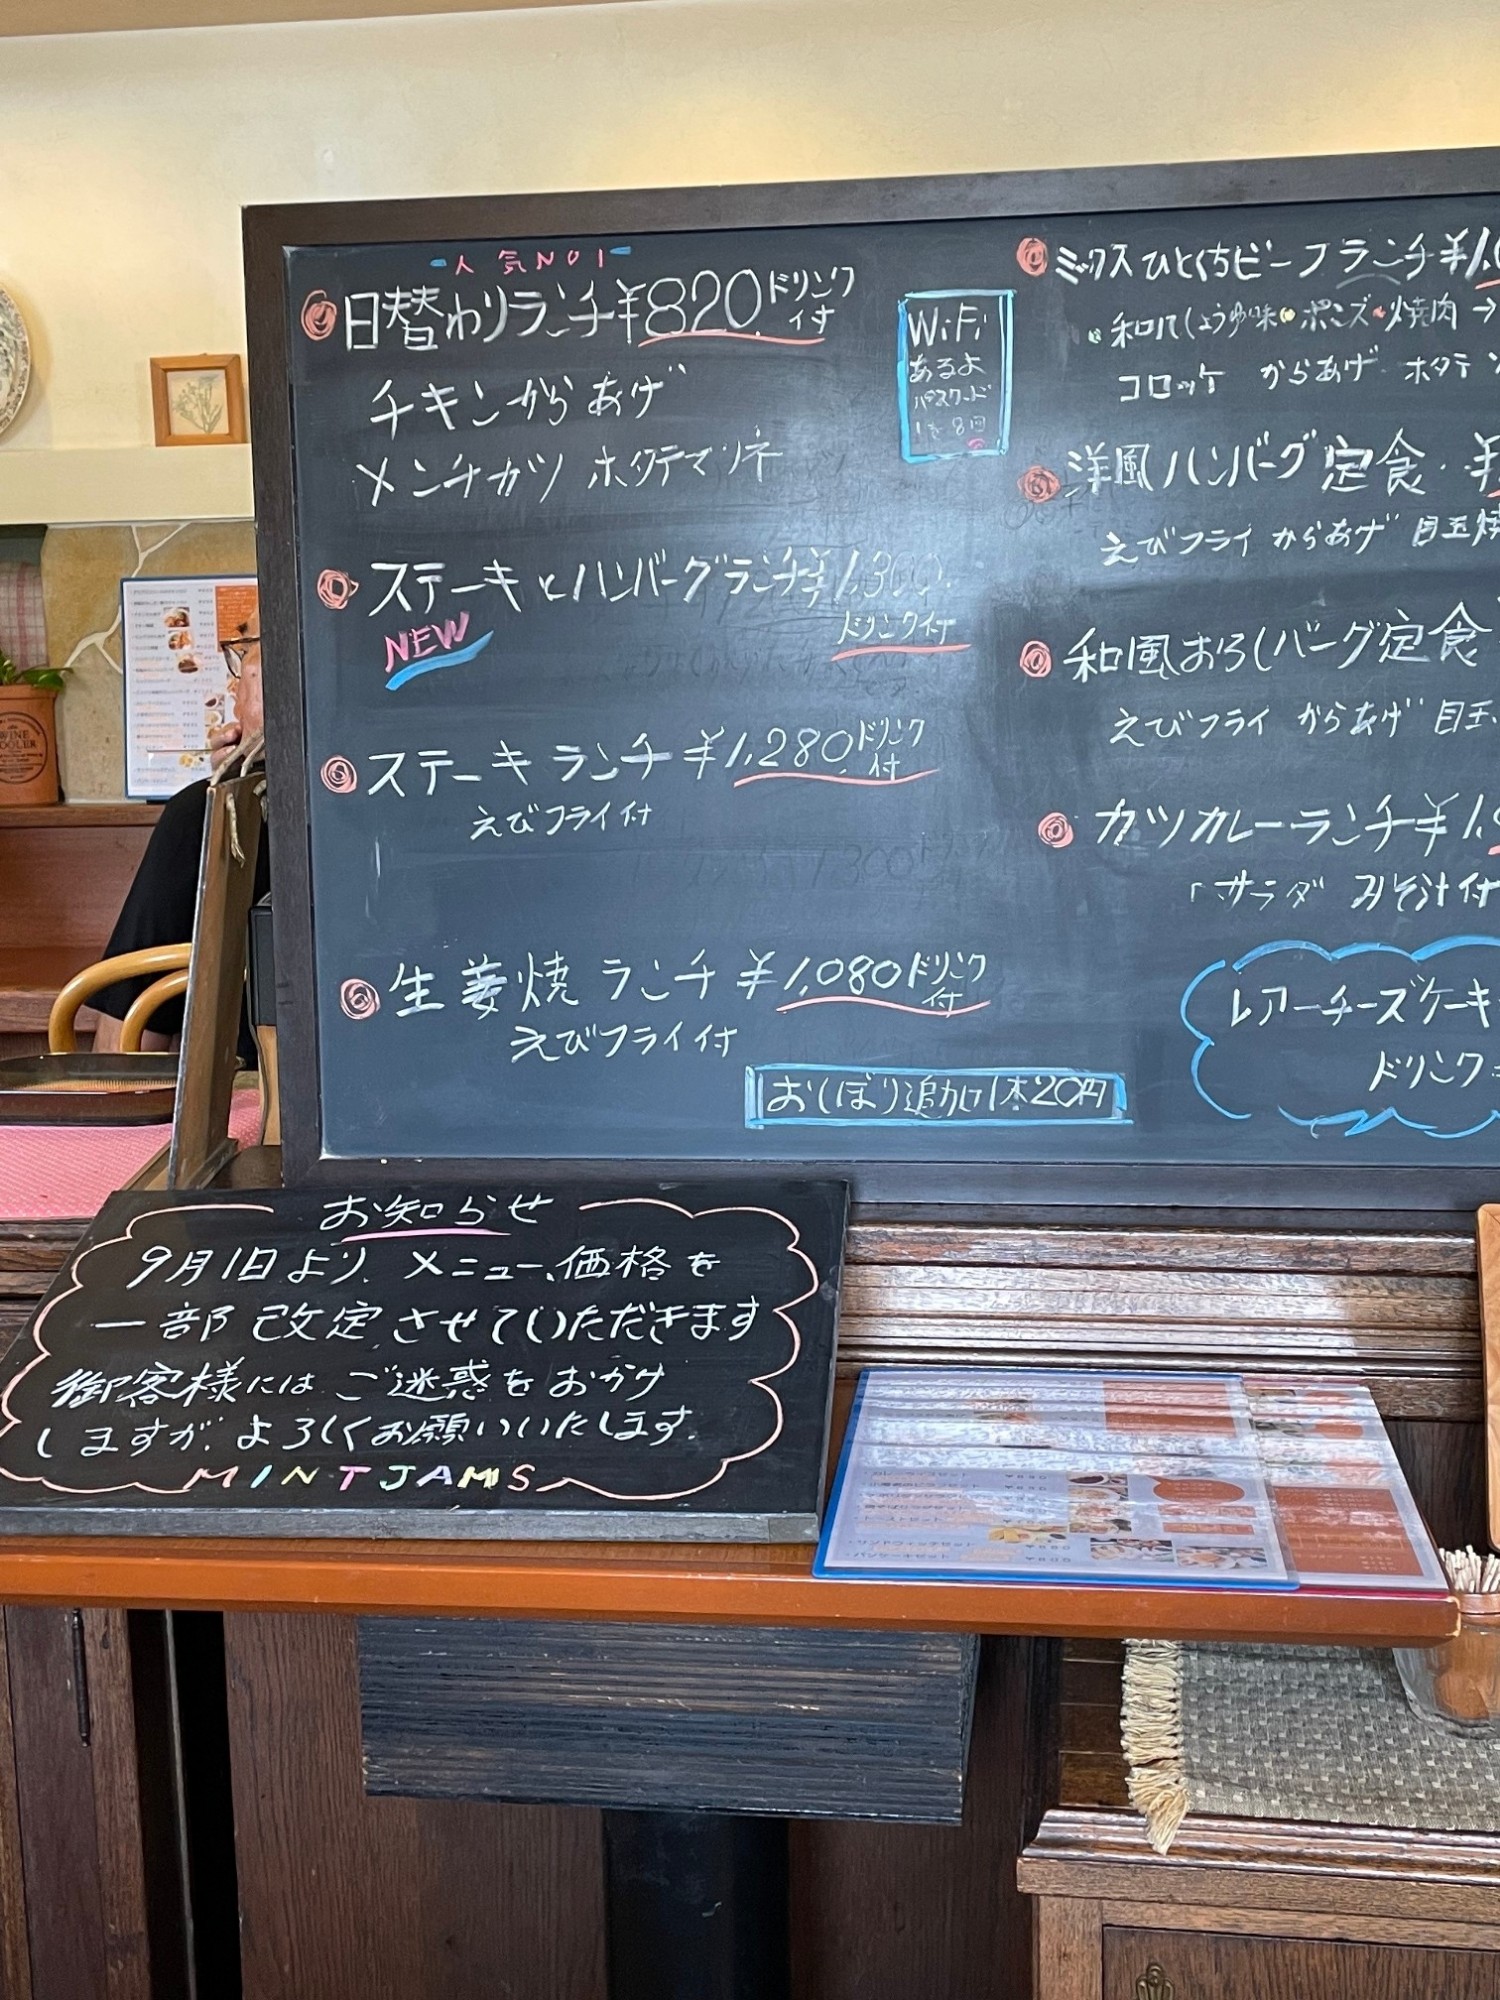 人気NO1
日替わりランチ¥820ドリンク付
チキンからあげ
メンチカツ ホタテマリネ
ステーキとハンバーグランチ¥1,300
ドリンク付
NEW
ステーキランチ¥1,280ドリンク付
えびフライ付
生姜焼ランチ¥1,080ドリンク付
えびフライ付
おしぼり追加1本20円
WiFi
あるよ
パスワード
ミックスひとくちビーフランチ¥1,
和風しょうゆ味 ポンズ 焼肉→
コロッケ からあげ ホタテ
洋風ハンバーグ定食 ¥
えびフライ からあげ 目玉焼
和風おろしバーグ定食
えびフライ からあげ 目玉
カツカレーランチ¥1,
「サラダ みそ汁付
レアーチーズケーキ
ドリンク
お知らせ
9月1日より、メニュー、価格を
一部改定させていただきます
御客様にはご迷惑をおかけ
しますが、よろしくお願いいたします。
MINTJAMS
WINE